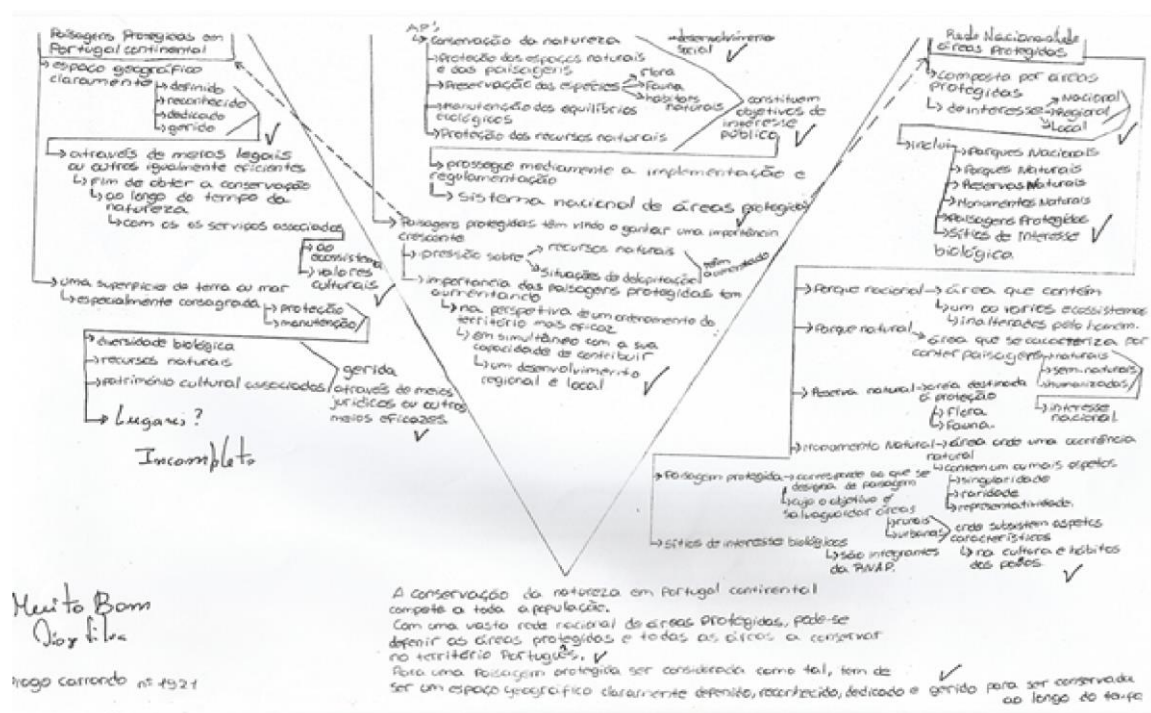 Paisagens Protegidas em
Portugal continental
espaço geográfico
claramente
definido
reconhecido
dedicado
gerido
através de meios legais
ou outros igualmente eficientes
fim de obter a conservação
ao longo do tempo da
natureza
com os os serviços associados
ao
ecossistema
valores
culturais
uma superfície de terra ou mar
especialmente consagrada
proteção
manutenção
diversidade biológica
recursos naturais
património cultural associados
gerida
através de meios
jurídicos ou outros
meios eficazes
Lugares?
Incompleto
AP's
conservação da natureza
desenvolvimento
social
Proteção dos espaços naturais
e das paisagens
Preservação das espécies
Flora
Fauna
habitats
naturais
Manutenção dos equilíbrios
ecológicos
Proteção dos recursos naturais
constituem
objetivos de
interesse
público
prossegue mediamente a implementação e
regulamentação
Sistema nacional de áreas protegidas
Paisagens protegidas têm vindo a ganhar uma importância
crescente
pressão sobre
recursos naturais
situações de delapitação
têm
aumentado
importancia das paisagens protegidas tem
aumentando
na perspetiva de um ordenamento do
território mais eficaz
em simultâneo com a sua
capacidade de contribuir
um desenvolvimento
regional e local
Rede Nacional de
áreas Protegidas
composta por áreas
protegidas
de interesse
Nacional
Regional
Local
inclui
Parques Nacionais
Parques Naturais
Reservas Naturais
Monumentos Naturais
Paisagens Protegidas
Sítios de Interesse
biológico
Parque nacional área que contém
um ou vários ecossistemas
inalterados pelo homem.
Parque natural
área que se caracteriza por
conter paisagens
naturais
seminaturais
humanizadas
interesse
nacional
Reserva natural área destinada
à proteção
Flora
Fauna.
Monumento Natural área onde uma ocorrência
natural
contem um ou mais aspetos
singularidade
raridade
representatividade.
Paisagem protegida corresponde ao que se
designa de paisagem
cujo o objetivo é
salvaguardar áreas
rurais
urbanas
onde subsistem aspetos
característicos
na cultura e hábitos
dos povos
sítios de interesse biológicos
são integrantes
da RNAP.
A conservação da natureza em Portugal continental
compete a toda a população.
Com uma vasta rede nacional de áreas Protegidas, pode-se
defenir as áreas protegidas e todas as áreas a conservar
no território Português.
Para uma Paisagem protegida ser considerada como tal, tem de
ser um espaço geográfico claramente defenido, reconhecido, dedicado e gerido para ser conservada
ao longo do
Muito Bom
nº 1921